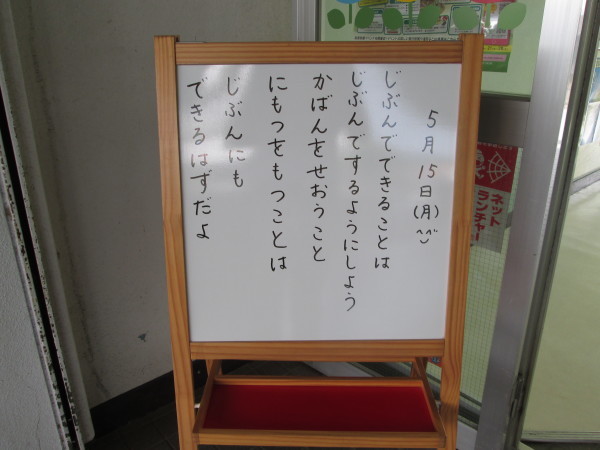 5月15日(月)^^
じぶんでできることは
じぶんでするようにしよう
かばんをせおうこと
にもつをもつことは
じぶんにも
できるはずだよ
ネット
ランチャー